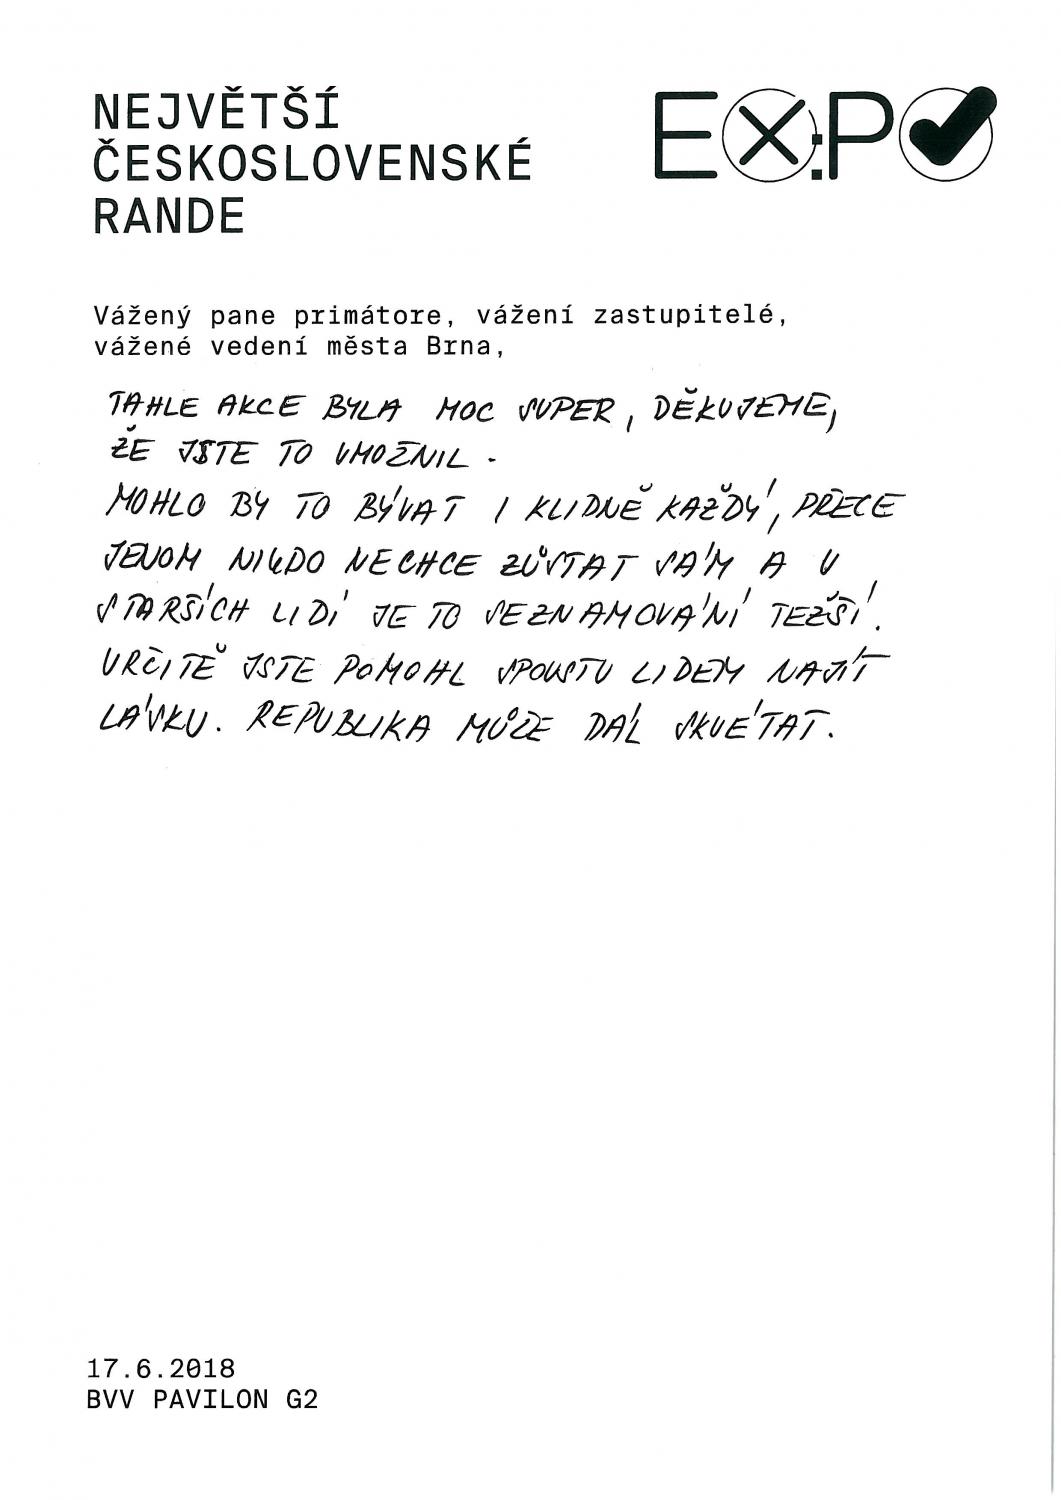 NEJVĚTŠÍ
ČESKOSLOVENSKÉ
RANDE
EX:PO
Vážený pane primátore, vážení zastupitelé,
vážené vedení města Brna,
TAHLE AKCE BYLA MOC SUPER, DĚKUJEME,
ŽE JSTE TO UMOŽNIL.
MOHLO BY TO BÝVAT I KLIDNĚ KAŽDÝ, PŘECE
JENOM NIKDO NECHCE ZŮSTAT SÁM A U
STARŠÍCH LIDÍ JE TO SEZNAMOVÁNÍ TEZŠÍ.
URČITĚ JSTE POMOHL SPOUSTU LIDEM NAJÍT
LÁSKU. REPUBLIKA MŮZE DÁL SKVÉTAT.
17.6.2018
BVV PAVILON G2